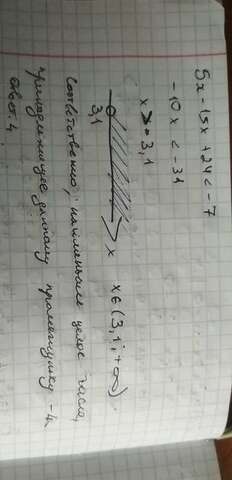 5x - 15x + 24 < -7
-10x < -31
x > 3,1
3,1 x x ∈ (3,1; +∞)
Соответственно, наименьшее целое число,
принадлежащее данному промежутку - 4.
Ответ. 4